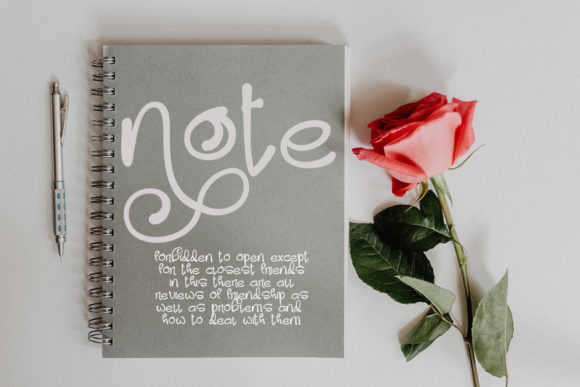 note
forbidden to open except
for the closest friends
in this there are all
reviews of friendship as
well as problems and
how to deal with them